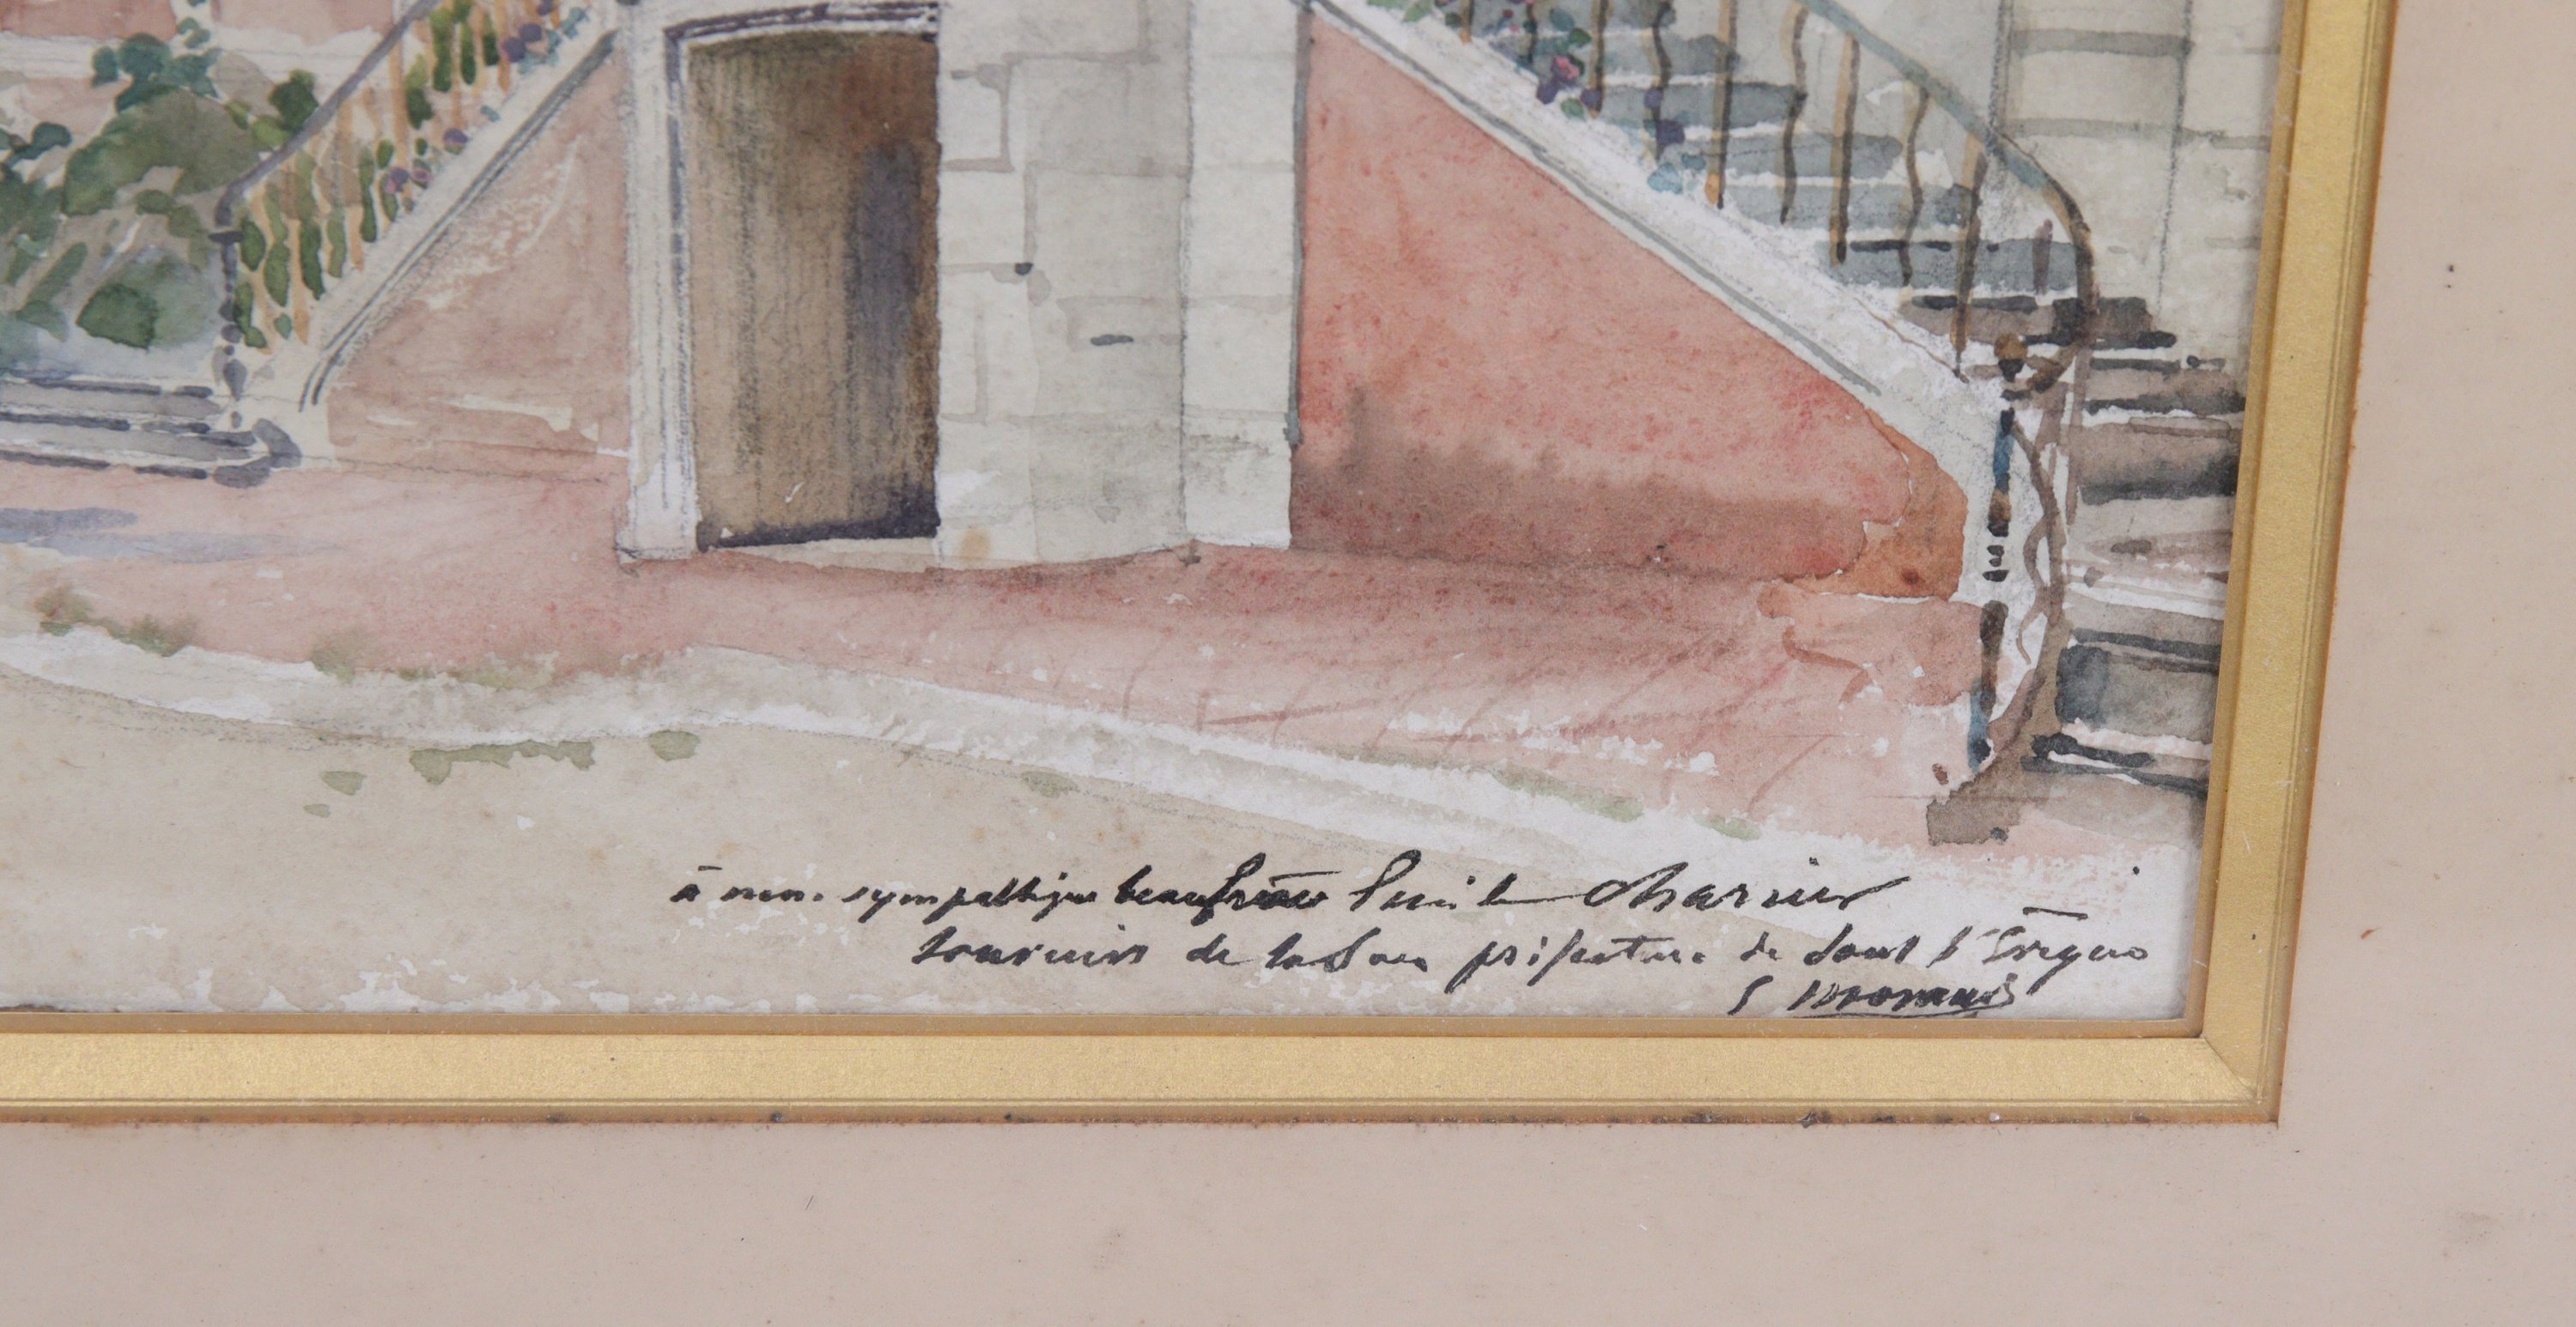 à mon sympathique beaufrère Emile Charier
souvenir de la Sous préfecture de